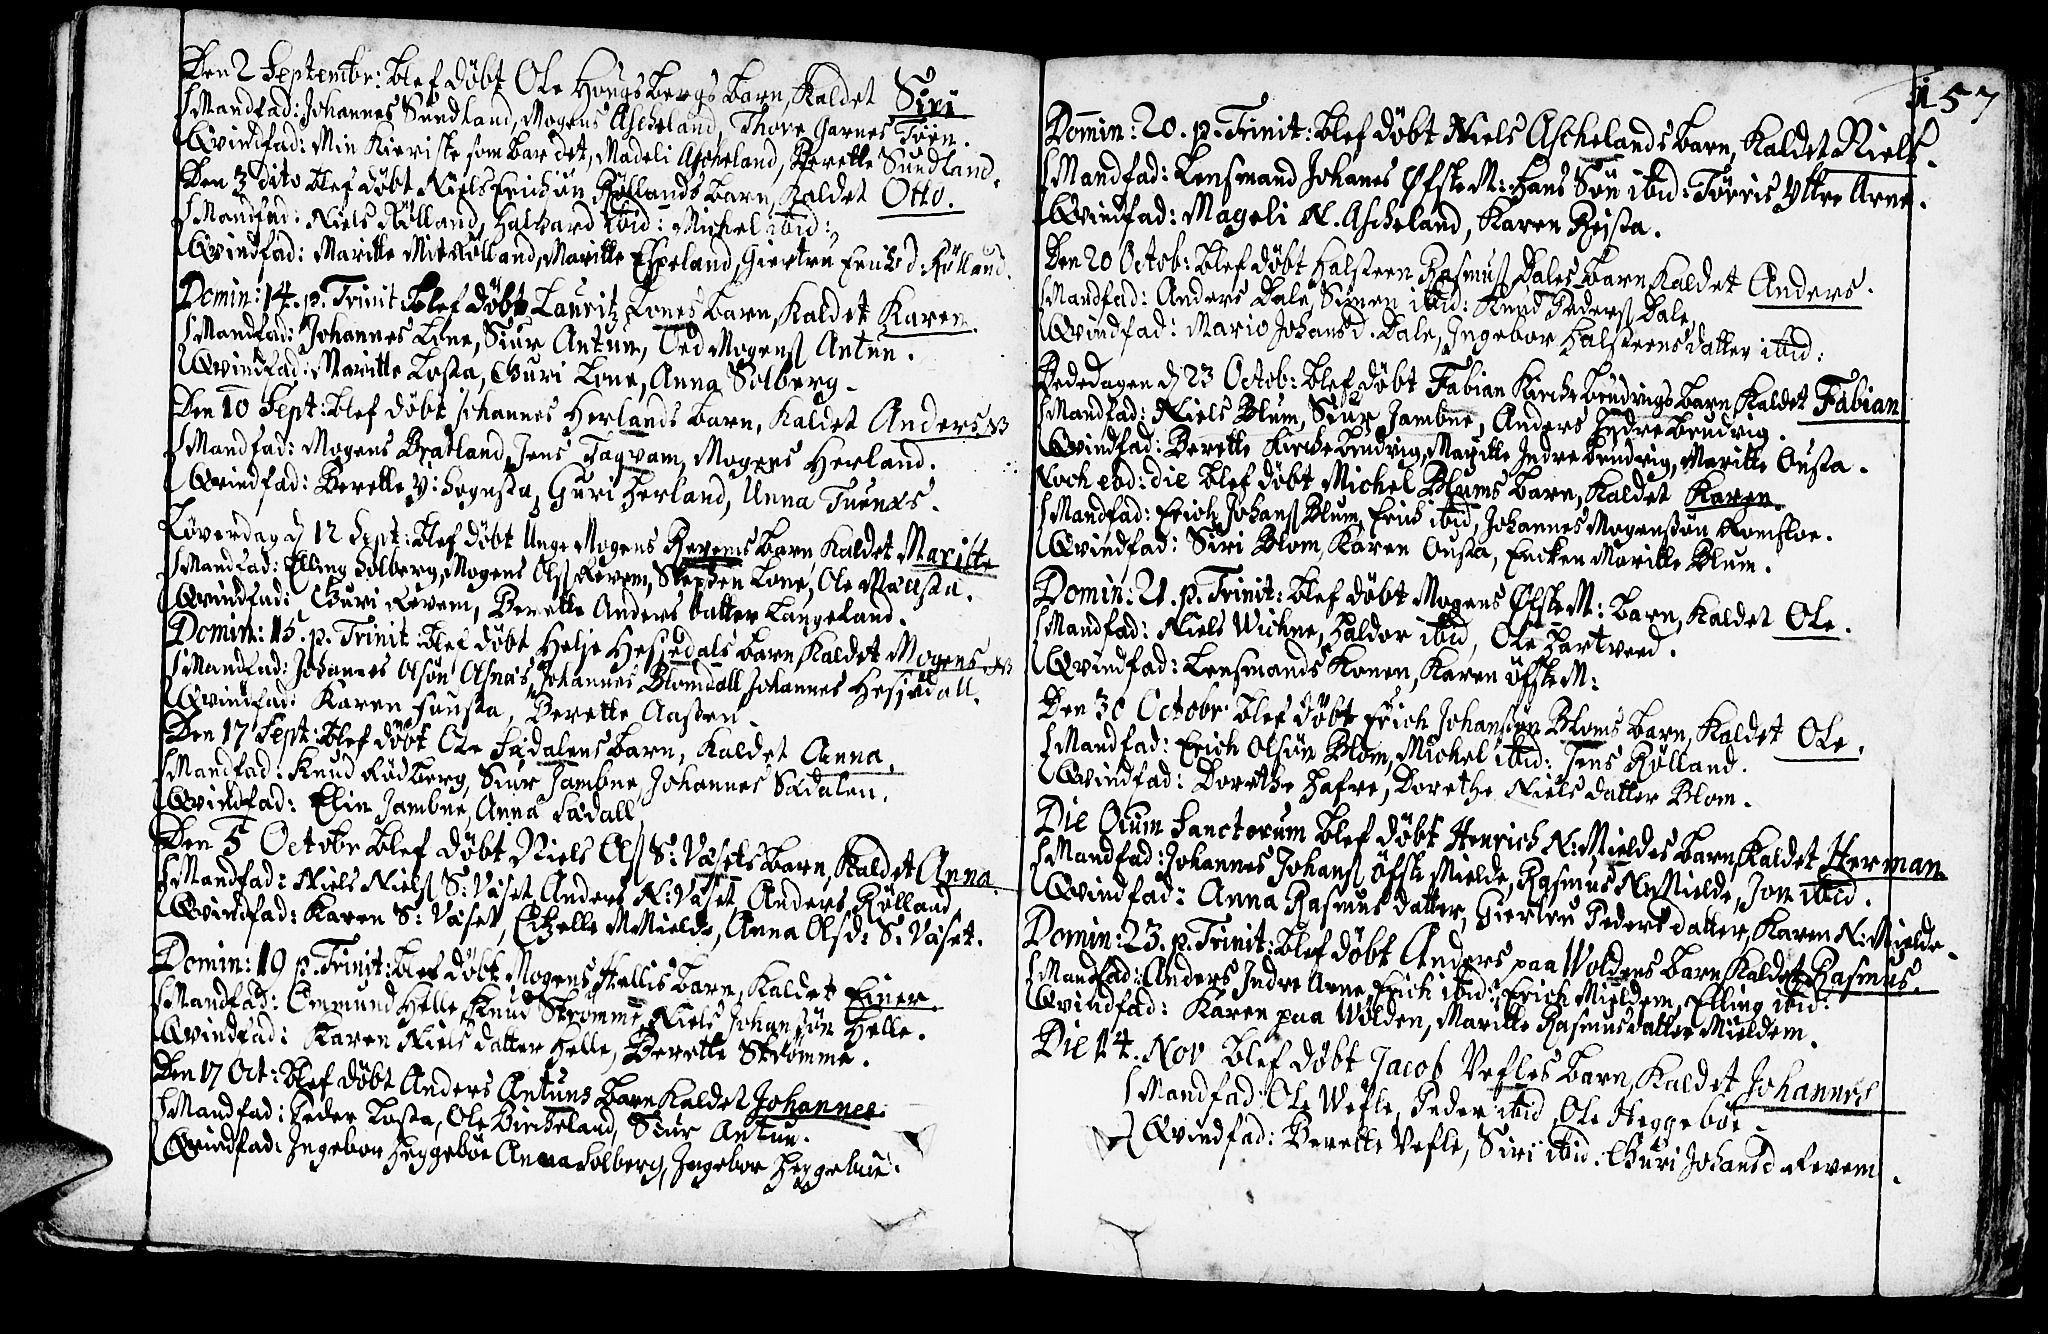 Den 2 Septembr: blef døbt Ole Hougsbergs Barn, kaldet Siri
Mandfad: Johannes Sundland, Mogens Ascheland, Thore Garnes Tøen.
Qvindfad: Min Kieriste som bar det, Madeli Ascheland, Berette Sundland.
Den 3 dito blef døbt Niels Erichsøn Røllands barn, kaldet Otto.
Mandfad: Niels Rølland, Halvard ibid: Michel ibid:
Qvindfad: Maritte Mit Rølland, Maritte Espeland, Giertru Erichsd: Rølland.
Domin: 14. p. Trinit blef døbt Lauritz Lones barn, kaldet Karen
Mandfad: Johannes Lone, Siur Antun, Oed Mogenss Antun.
Qvindfad: Maritte Losta, Guri Lone, Anna Solberg.
Den 10 Sept: blef døbt Johannes Herlands barn, kaldet Anders NB
Mandfad: Mogens Bratland, Jens Tagvam, Mogens Herland.
Qvindfad: Berette Y: Sognsta, Guri Herland, Unna Tuenes.
Løverdag d 12 Sept: blef døbt Unge Mogens Revems barn, kaldet Maritte
Mandfad: Elling Solberg, Mogens Olss Revem, Steffen Lone, Ole Housta.
Qvindfad: Guri Revem, Berette Anders datter Langeland.
Domin: 15. p. Trinit: blef døbt Helje Hesjedals barn kaldet Mogens NB
Mandfad: Johannes Olsøn Aasnes, Johannes Blomdall Johannes Hesjedall.
Qvindfad: Karen Fuusta, Berette Aassen.
Den 17 Sept: blef døbt Ole Sædalens barn, kaldet Anna.
Mandfad: Knud Rødberg, Siur Jambne, Johannes Sædalen.
Qvindfad: Elin Jambne, Anna Sædall
Den 5 Octobr blef døbt Niels Olss S: Væsets barn, kaldet Anna
Mandfad: Niels Nielss S: Væset, Anders N: Væset, Anders Rølland
Qvindfad: Karen S: Væset, Citzelle M Mielde, Anna Olsd: S: Væset.
Domin: 19 p. Trinit: blef døbt Mogens Hellis barn, kaldet Einer
Mandfad: Emmund Helle, Knud Strømme, Niels Johansøn Helle.
Qvindfad: Karen Niels datter Helle, Berette Strømme.
Den 17 Oct: blef døbt Anders Antuns barn kaldet Johannes
Mandfad: Peder Losta, Ole Bircheland, Siur Antun.
Qvindfad: Ingebor Heggebøe Anna Solberg, Ingebor Heggebue.
157
Domin: 20. p. Trinit: blef døbt Niels Aschelands barn, kaldet Niels.
Mandfad: Lensmand Johanes Øfste M: Hans Søn ibid: Tørris Yttre Arne.
Qvindfad: Mageli N. Ascheland, Karen Reista.
Den 20 Octob: blef døbt Halsteen Rasmuss Dales barn kaldet Anders.
Mandfad: Anders Dale, Simen ibid: Knud Pederss Dale,
Qvindfad: Mario Johansd. Dale, Ingebor Halsteens datter ibid:
Bededagen d 23 Octob: blef døbt Fabian Kirche brudvigs barn kaldet Fabian
Mandfad: Niels Blum, Siur Jambne, Anders Indre Brudvig.
Qvindfad: Berette Kirche brudvig, Maritte Indre brudvig, Maritte Ousta.
Noch eod: die blef døbt Michel Blums barn, kaldet Karen.
Mandfad: Erich Johanss Blum, Erich ibid, Johannes Mogenssøn Romsloe.
Qvindfad: Siri Blom, Karen Ousta, Encken Maritte Blum.
Domin: 21. p. Trinit: blef døbt Mogens Øfste M: barn, kaldet Ole.
Mandfad: Niels Wichne, Haldor ibid, Ole Hartveed.
Qvindfad: Lensmands Konen, Karen Øfste M:
Den 30 Octobr blef døbt Erich Johanssøn Bloms barn, kaldet Ole.
Mandfad: Erich Olsøn Blom, Michel ibid: Jens Rølland.
Qvindfad: Dorethe Hafre, Dorethe Niels datter Blom.
Die Oium Sanctorum blef døbt Henrich N: Mieldes barn, kaldet Herman
Mandfad: Johannes Johanss Øfste Mielde, Rasmus N: Mielde, Jon ibid.
Qvindfad: Anna Rasmus datter, Giertru Peders datter, Karen N: Mielde.
Domin: 23. p. Trinit: blef døbt Anders paa Woldens barn kaldet Rasmus.
Mandfad: Anders Indre Arne, Erich ibid: Erich Mieldem, Elling ibid:
Qvindfad: Karen paa Wolden, Maritte Rasmusdatter Mieldem.
Die 14. Nov blef døbt Jacob Vefles barn, kaldet Johannes
Mandfad: Ole Wefle, Peder ibid, Ole Heggebøe.
Qvindfad: Berette Vefle, Siri ibid. Guri Johansd Revem.